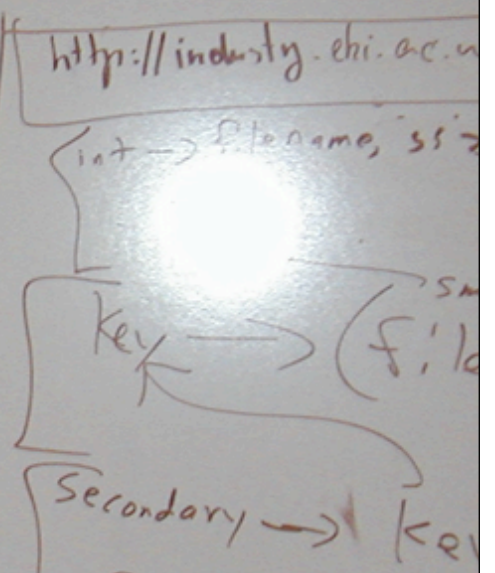 http://industry.ebi.ac.u
int → filename, siz
sm
key → (file
secondary → key